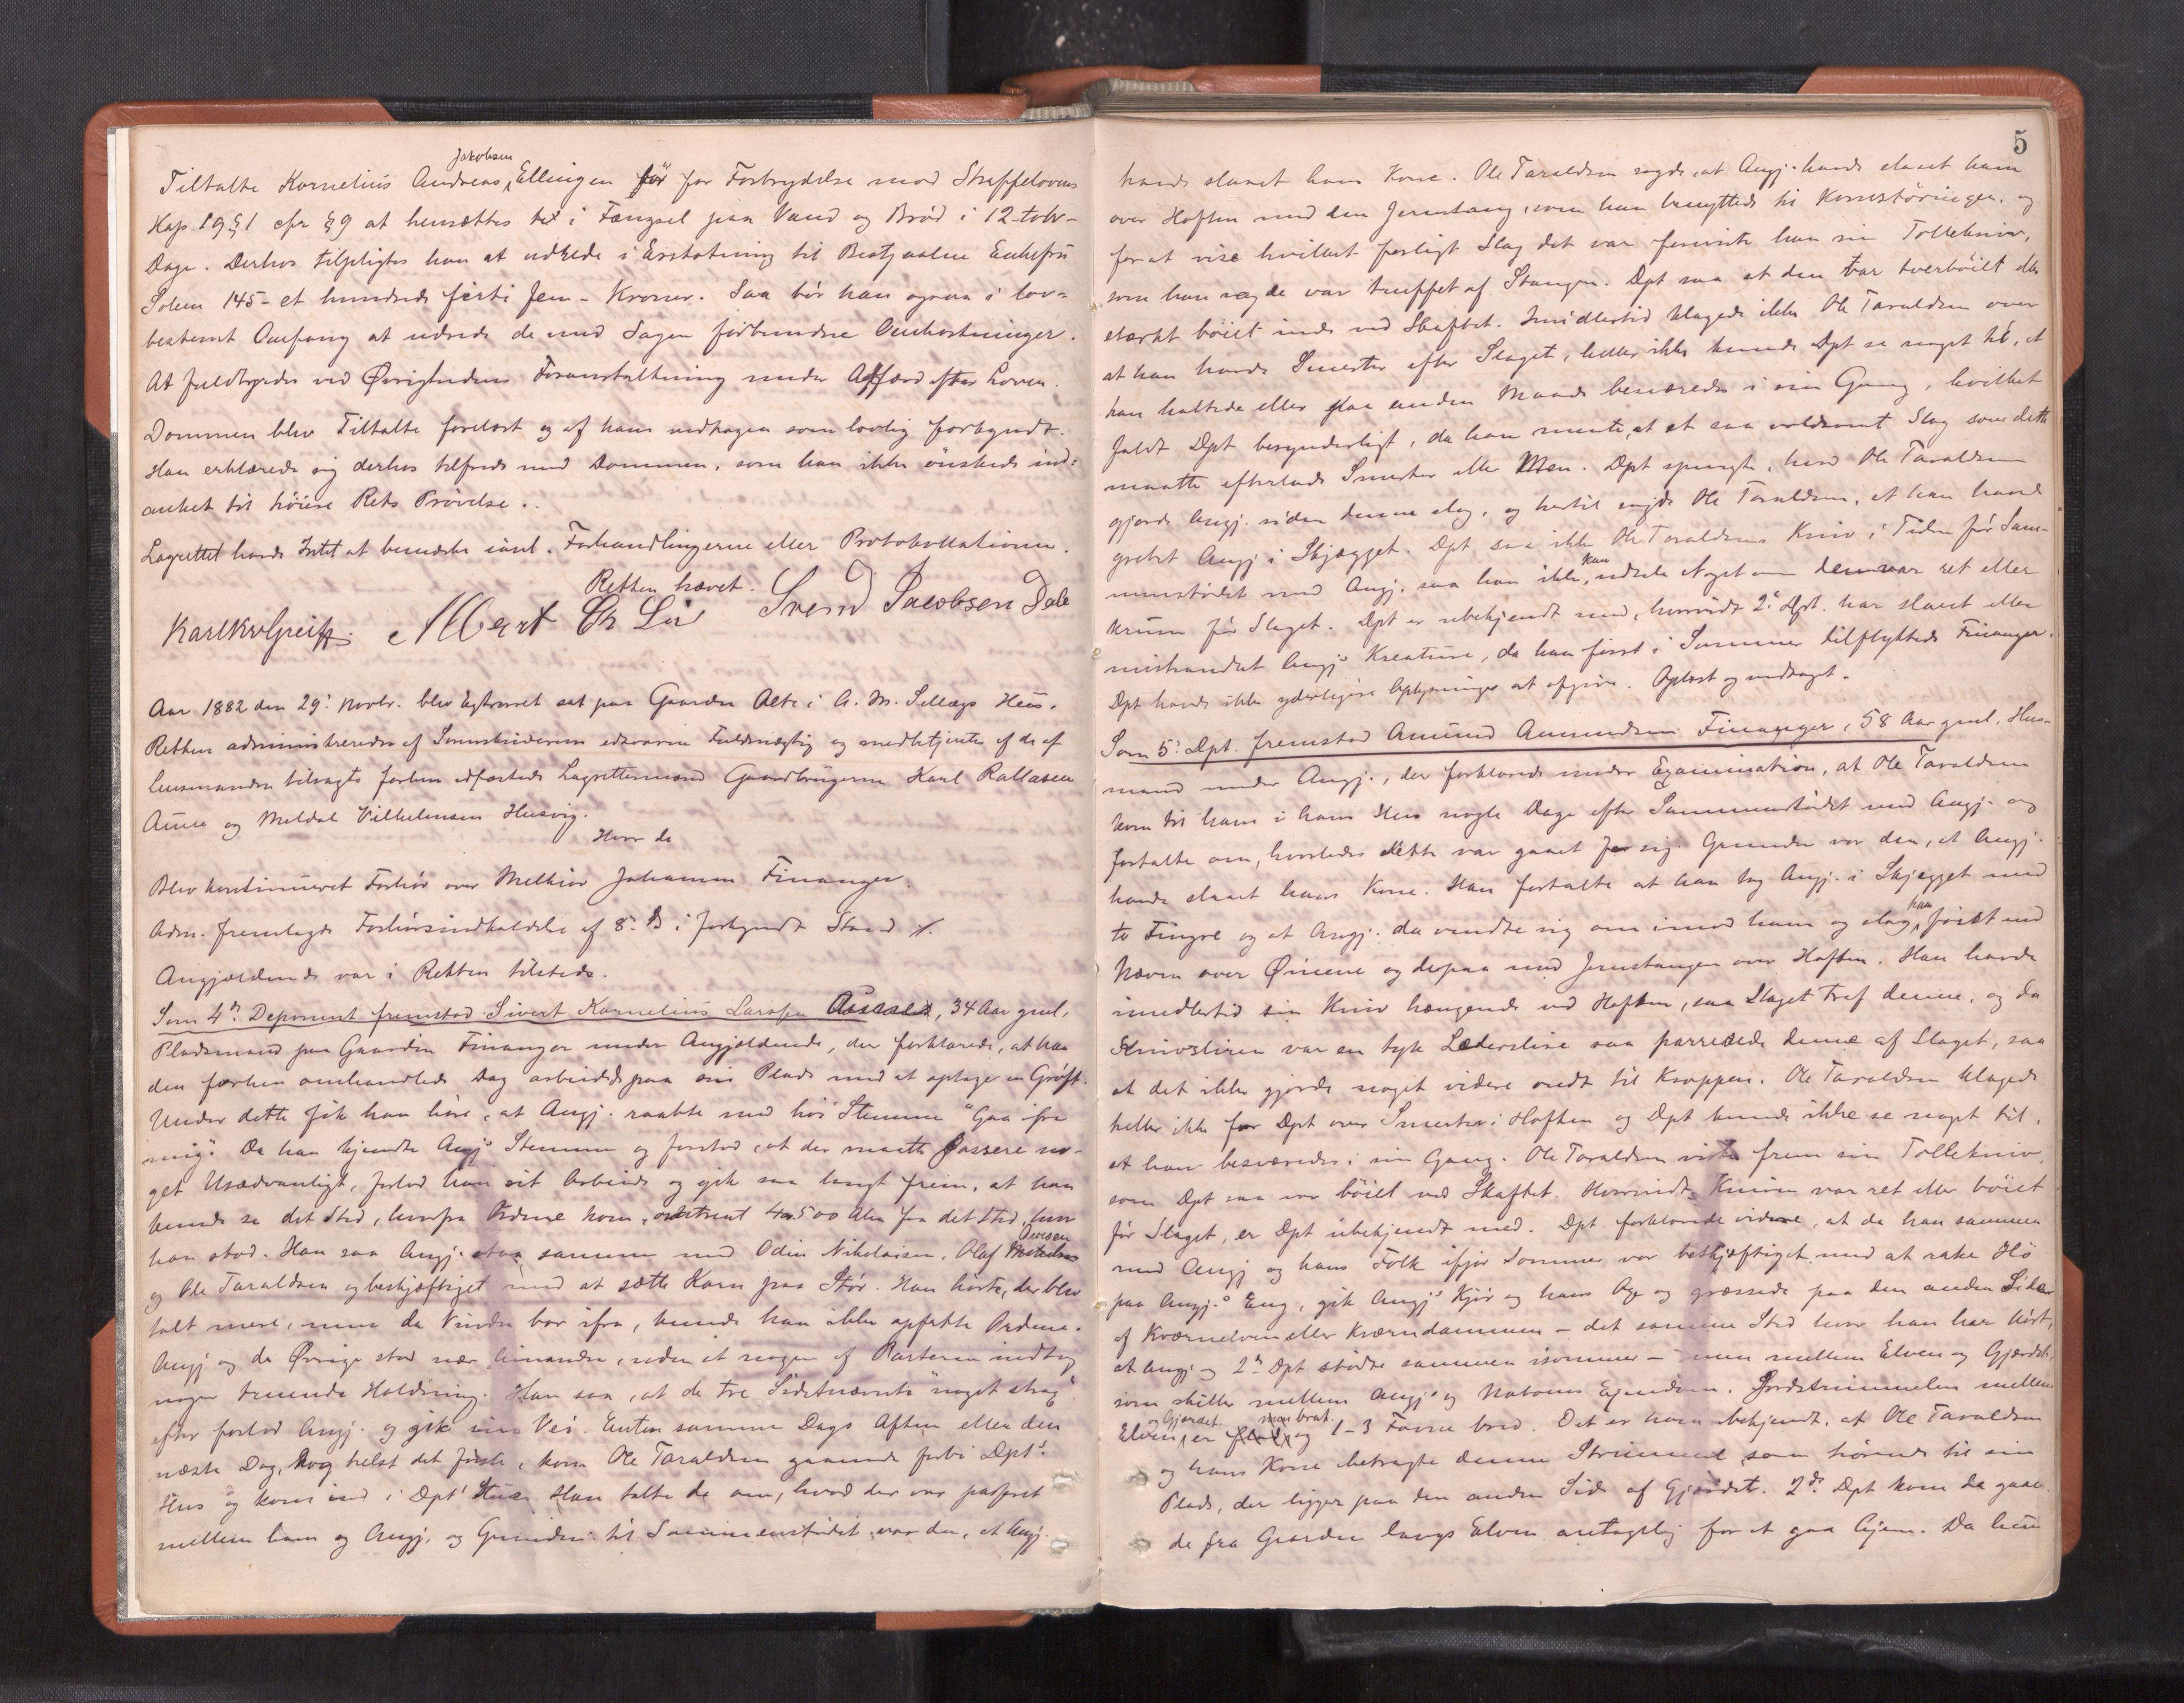 Jakobsen
Tiltalte Kornelius Andreas Ellingen før for Forbrydelse mod Straffelovens
Kap. 19 § 1 cfr § 9 at hensættes til i Fængsel paa Vand og Brød i 12 - tolv -
Dage. Derhos tilpligtes han at udrede i Erstatning til Bestjaalne Enkefru
Solem 145 - et hundrede førti fem - Kroner. Saa bør han ogsaa i lov-
bestemt Omfang at udrede de med Sagen forbundne Omkostninger.
At fuldbyrdes ved Øvrighedens Foranstaltning under Adfærd efter Loven.
Dommen blev Tiltalte forelæst og af ham vedtagen som lovlig forkyndt.
Han erklærede sig derhos tilfreds med Dommen, som han ikke ønskede ind-
anket til høiere Rets Prøvelse.
Lagrettet havde Intet at bemærke imod Forhandlingerne eller Protokollationen.
Retten hævet.
Karl Kr Greiff. Albert Chr Lie Svend Jacobsen Dale
Aar 1882 den 29' Novbr. blev Extraret sat paa Gaarden i A. M. Hus.
Retten administreredes af Sorenskriverens edsvorne Fuldmægtig og medbetjentes af de af
Lensmanden tilsagte forhen edfæstede Lagrettesmænd Gaardbrugerne Karl Rallasen
Aune og Meldal Vilhelmsen Husvig.
Hvor da
Blev kontinueret Forhør over Melkior Johansen Finanger.
Adm. fremlagde Forhørsindkaldelse af 8. ds i forkyndt Stand ./.
Angjældende var i Retten tilstede.
Som 4de Deponent fremstod Sivert Kornelius Larssen, 34 Aar gml,
Pladsmand paa Gaarden Finanger under Angjældende, der forklarede, at han
den forhen omhandlede Dag arbeidede paa sin Plads med at optage en Grøft.
Under dette fik han høre, at Angj. raabte med høi Stemme "Gaa ifra
mig". Da han kjendte Angjs Stemme og forstod, at der maatte passere no-
get Usædvanligt, forlod han sit Arbeide og gik saa langt frem, at han
kunde se det Sted, hvorfra Ordene kom, omtrent 4 a 500 Alen fra det Sted, hvor
Iversen
han stod. Han saa Angj. staa sammen med Odin Nikolaisen, Olaf
og Ole Taraldsen og beskjæftiget med at sætte Korn paa Stør. Han hørte, der blev
talt mere, men da Vinden bar ifra, kunde han ikke opfatte Ordene.
Angj og de Øvrige stod nær hinanden, uden at nogen af Parterne indtog
nogen truende Holdning. Han saa, at de tre Sidstnævnte "noget strag"
efter forlod Angj. og gik sin Vei. Enten samme Dags Aften eller den
næste Dag, dog helst det første, kom Ole Taraldsen gaaende forbi Dpts
Hus og kom ind i Dpts Stue. Han talte da om, hvad der var passeret
mellem ham og Angj. og Grunden til Sammenstødet var den, at Angj.
5
havde slaaet hans Kone. Ole Taraldsen sagde, at Angj. havde slaaet ham
over Hoften med den Jernstang, som han benyttede til Kornstøringen, og
for at vise hvilket farligt Slag det var foreviste han sin Tollekniv,
som han sagde var truffet af Stangen. Dpt saa at den var tverbøiet eller
stærkt bøiet inde ved Skaftet. Imidlertid klagede ikke Ole Taraldsen over
at han havde Smerter efter Slaget, heller ikke kunde Dpt se noget til, at
han haltede eller paa anden Maade besværedes i sin Gang, hvilket
faldt Dpt besynderligt, da han mente, at et saa voldsomt Slag som dette
maatte efterlade Smerter eller Men. Dpt spurgte, hvad Ole Taraldsen
gjorde Angj. siden denne slog, og hertil sagde Ole Taraldsen, at han havde
grebet Angj i Skjægget. Dpt saa ikke Ole Taraldsens Kniv i Tiden før Sam-
kan
menstødet med Angj, saa han ikke udtale Noget om den var ret eller
krum før Slaget. Dpt er ubekjendt med, hvorvidt 2' Dpt. har slaaet eller
mishandlet Angjs Kreature, da han først i Sommer tilflyttede Finanger.
Dpt havde ikke yderligere Oplysninger at afgive. Oplæst og vedtaget.
Som 5' Dpt. fremstod Amund Amundsen Finanger, 58 Aar gml, Hus-
mand under Angj., der forklarede under Examination, at Ole Taraldsen
kom til ham i hans Hus nogle Dage efter Sammenstødet med Angj. og
fortalte om, hvorledes dette var gaaet for sig. Grunden var den, at Angj.
havde slaaet hans Kone. Han fortalte at han tog Angj. i Skjægget med
han
to Fingre og at Angj. da vendte sig om imod ham og slog først med
Næven over Øinene og derpaa med Jernstangen over Hoften. Han havde
imidlertid sin Kniv hængende ved Hoften, saa Slaget traf denne, og da
Knivsliren var en tyk Læderslire saa parrerede denne af Slaget, saa
at det ikke gjorde noget videre ondt til Kroppen. Ole Taraldsen klagede
heller ikke for Dpt over Smerter i Hoften og Dpt kunde ikke se noget til,
at han besværedes i sin Gang. Ole Taraldsen viste frem sin Tollekniv,
som Dpt saa var bøiet ved Skaftet. Hvorvidt Kniven var ret eller bøiet
før Slaget, er Dpt ubekjendt med. Dpt. forklarede videre, at da han sammen
med Angj og hans Folk ifjor Sommer var beskjæftiget med at rake Hø
paa Angj.s Eng, gik Angjs Kjør og hans Oxe og græssede paa den anden Side
af Kværnelven eller Kværndammen - det samme Sted hvor han har hørt,
at Angj og 2den Dpt stødte sammen isommer - men mellem Elven og Gjærdet,
som skiller mellem Angjs og Naboens Eiendom. Jordstrimmelen mellem
og Gjærdet brat
Elven er og 1-3 Favne bred. Det er ham bekjendt, at Ole Taraldsen
og hans Kone betragte denne Strimmel som hørende til sin
Plads, der ligger paa den anden Side af Gjærdet. 2de Dpt kom da gaaen-
de fra Gaarden langs Elven antagelig for at gaa hjem. Da hun